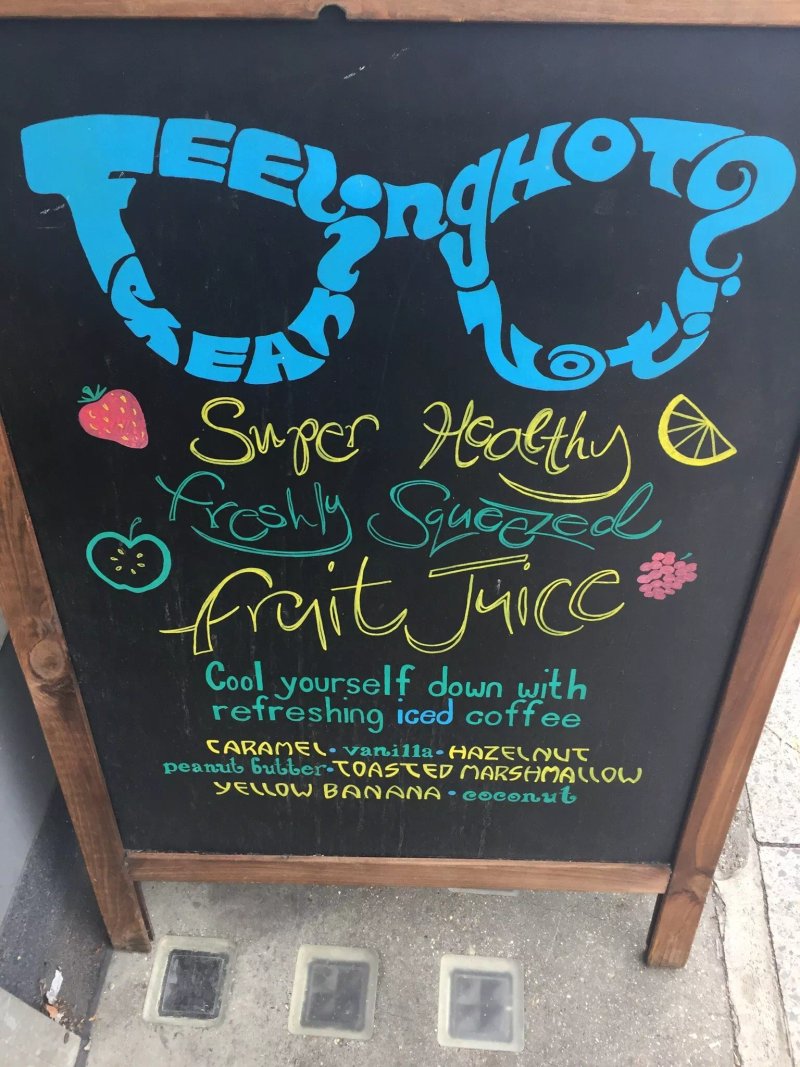 FEELingHOT?
FEAR Not!
Super Healthy
Freshly Squeezed
Fruit Juice
Cool yourself down with
refreshing iced coffee
CARAMEL • vanilla • HAZELNUT
peanut butter • TOASTED MARSHMALLOW
YELLOW BANANA • coconut